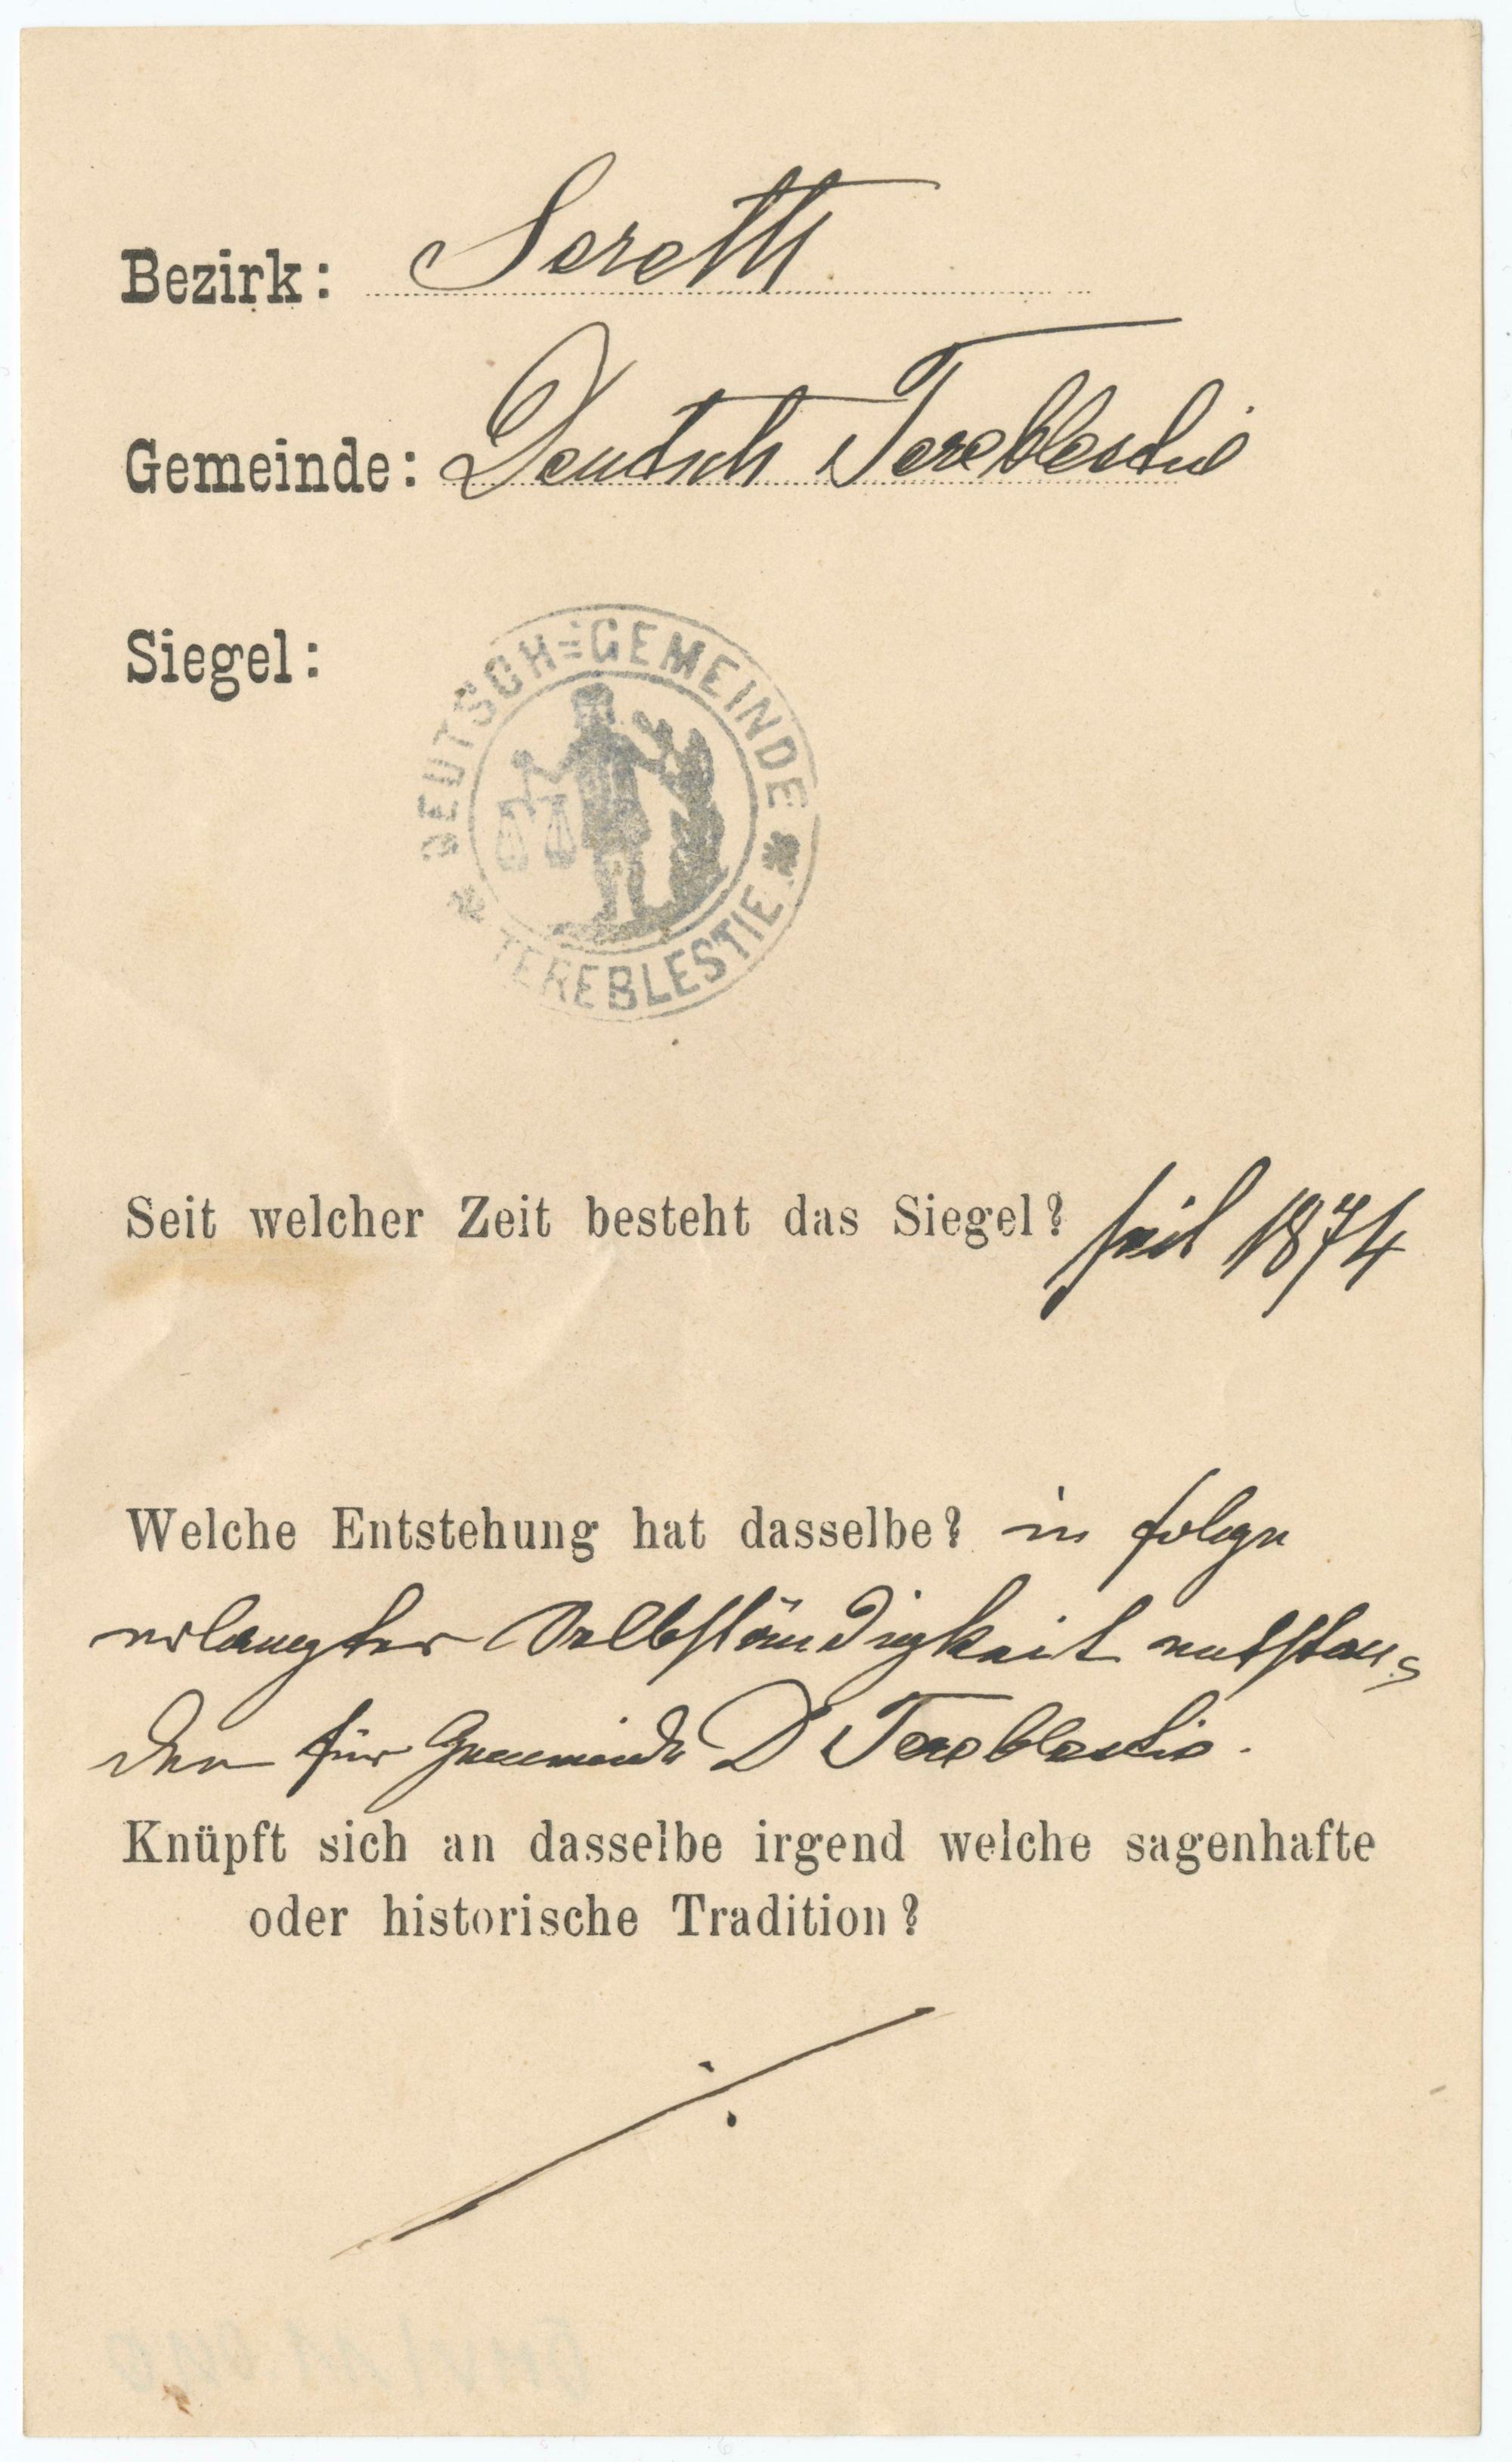 Bezirk: Sereth
Gemeinde: Deutsch Tereblestie
Siegel:
DEUTSCH=GEMEINDE
* TEREBLESTIE *
Seit welcher Zeit besteht das Siegel? seit 1874
Welche Entstehung hat dasselbe? in folge
erlangter Selbständigkeit entstan=
den für Gemeinde D Tereblestie.
Knüpft sich an dasselbe irgend welche sagenhafte
oder historische Tradition?